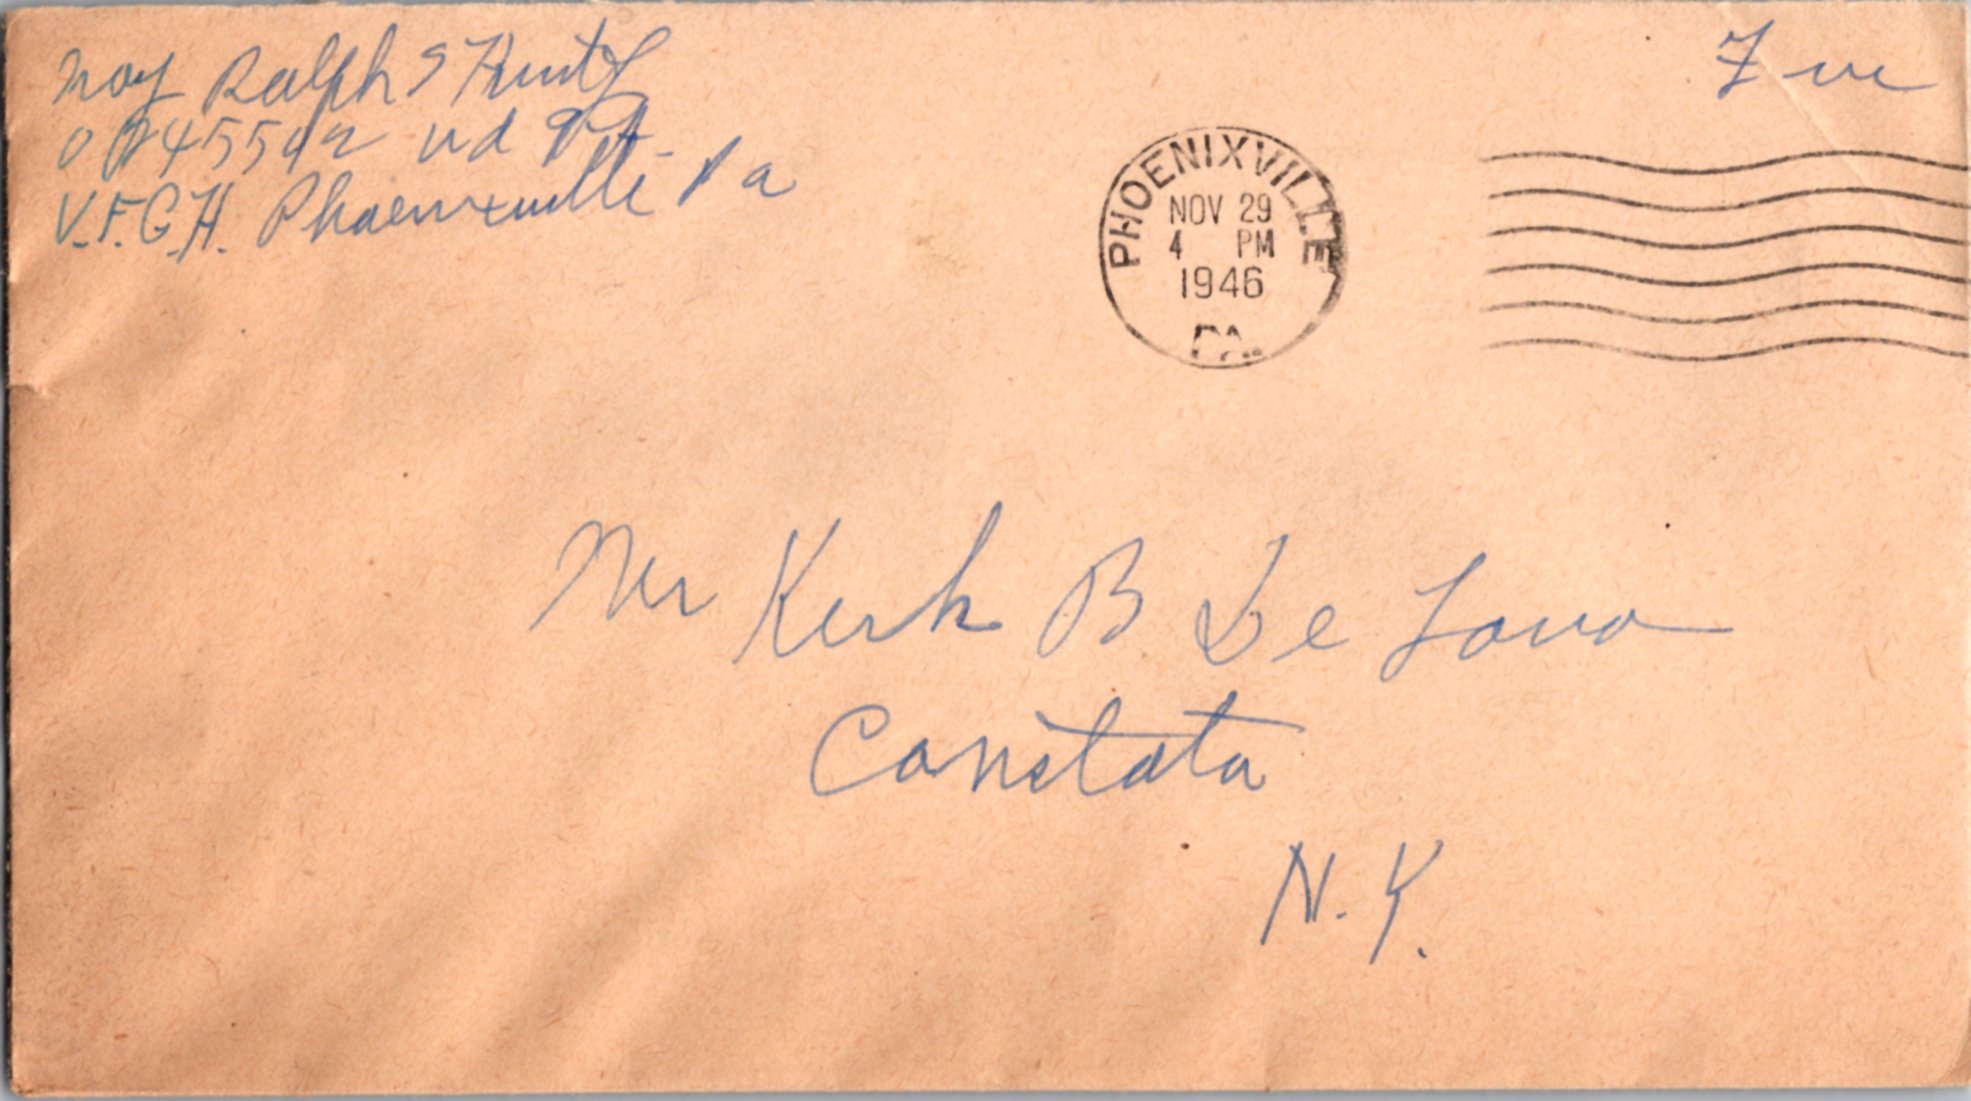 Maj Ralph S Huntz
0 245592 wd
V.F.G.H. Phoenixville Pa
Free
PHOENIXVILLE
NOV 29
4 PM
1946
PA.
Mr Kirk B De Lano
Constata
N.Y.